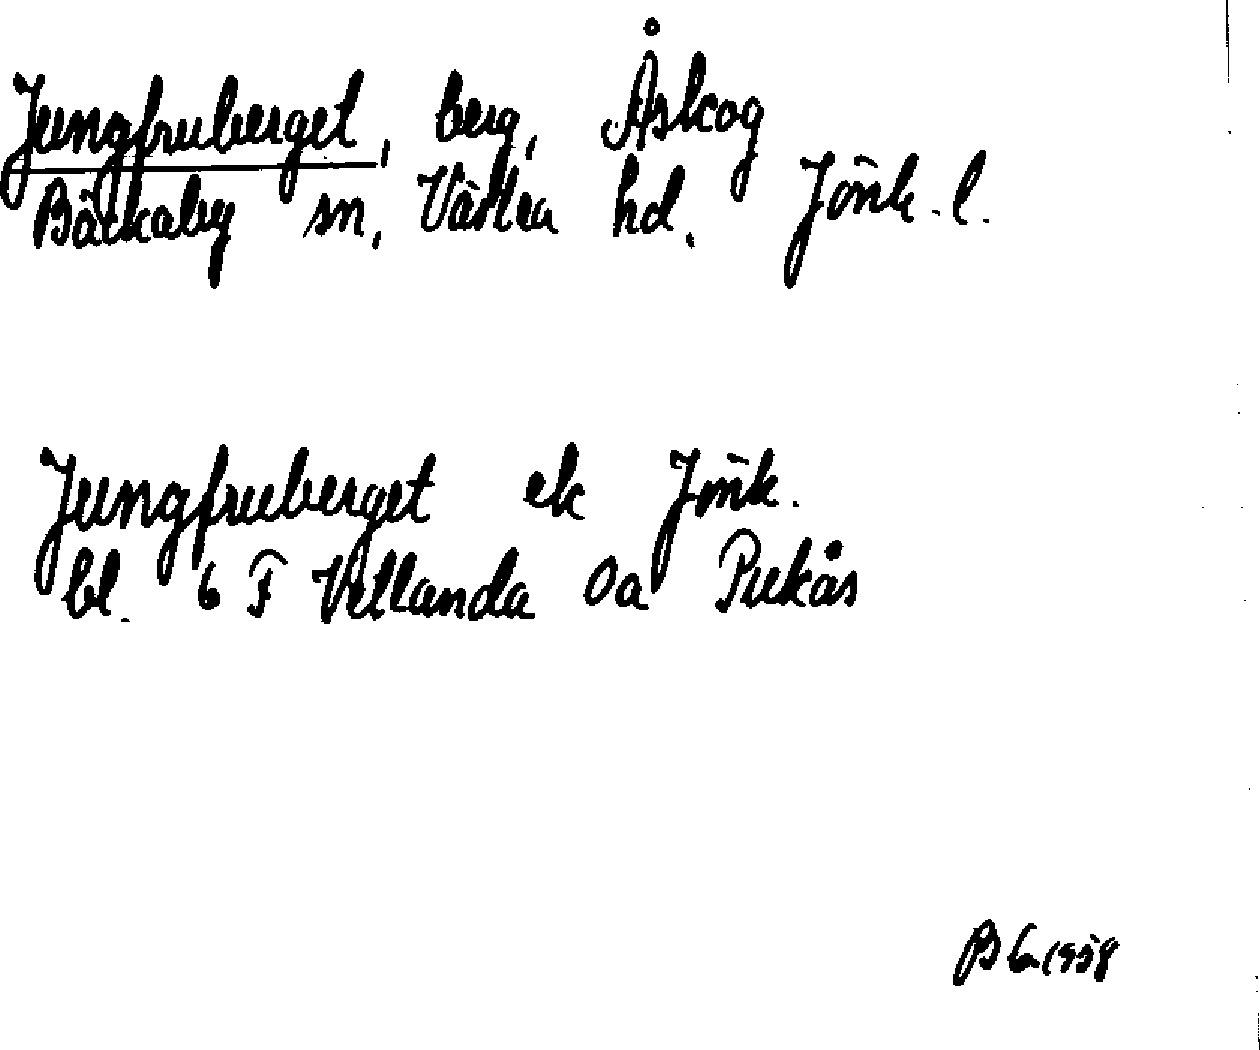 Jungfruberget, berg, Åskog
Bäckaby sn, Västra hd. Jönk. l.
Jungfruberget ek Jönk.
bl. 6 F Vetlanda 0a Pukås